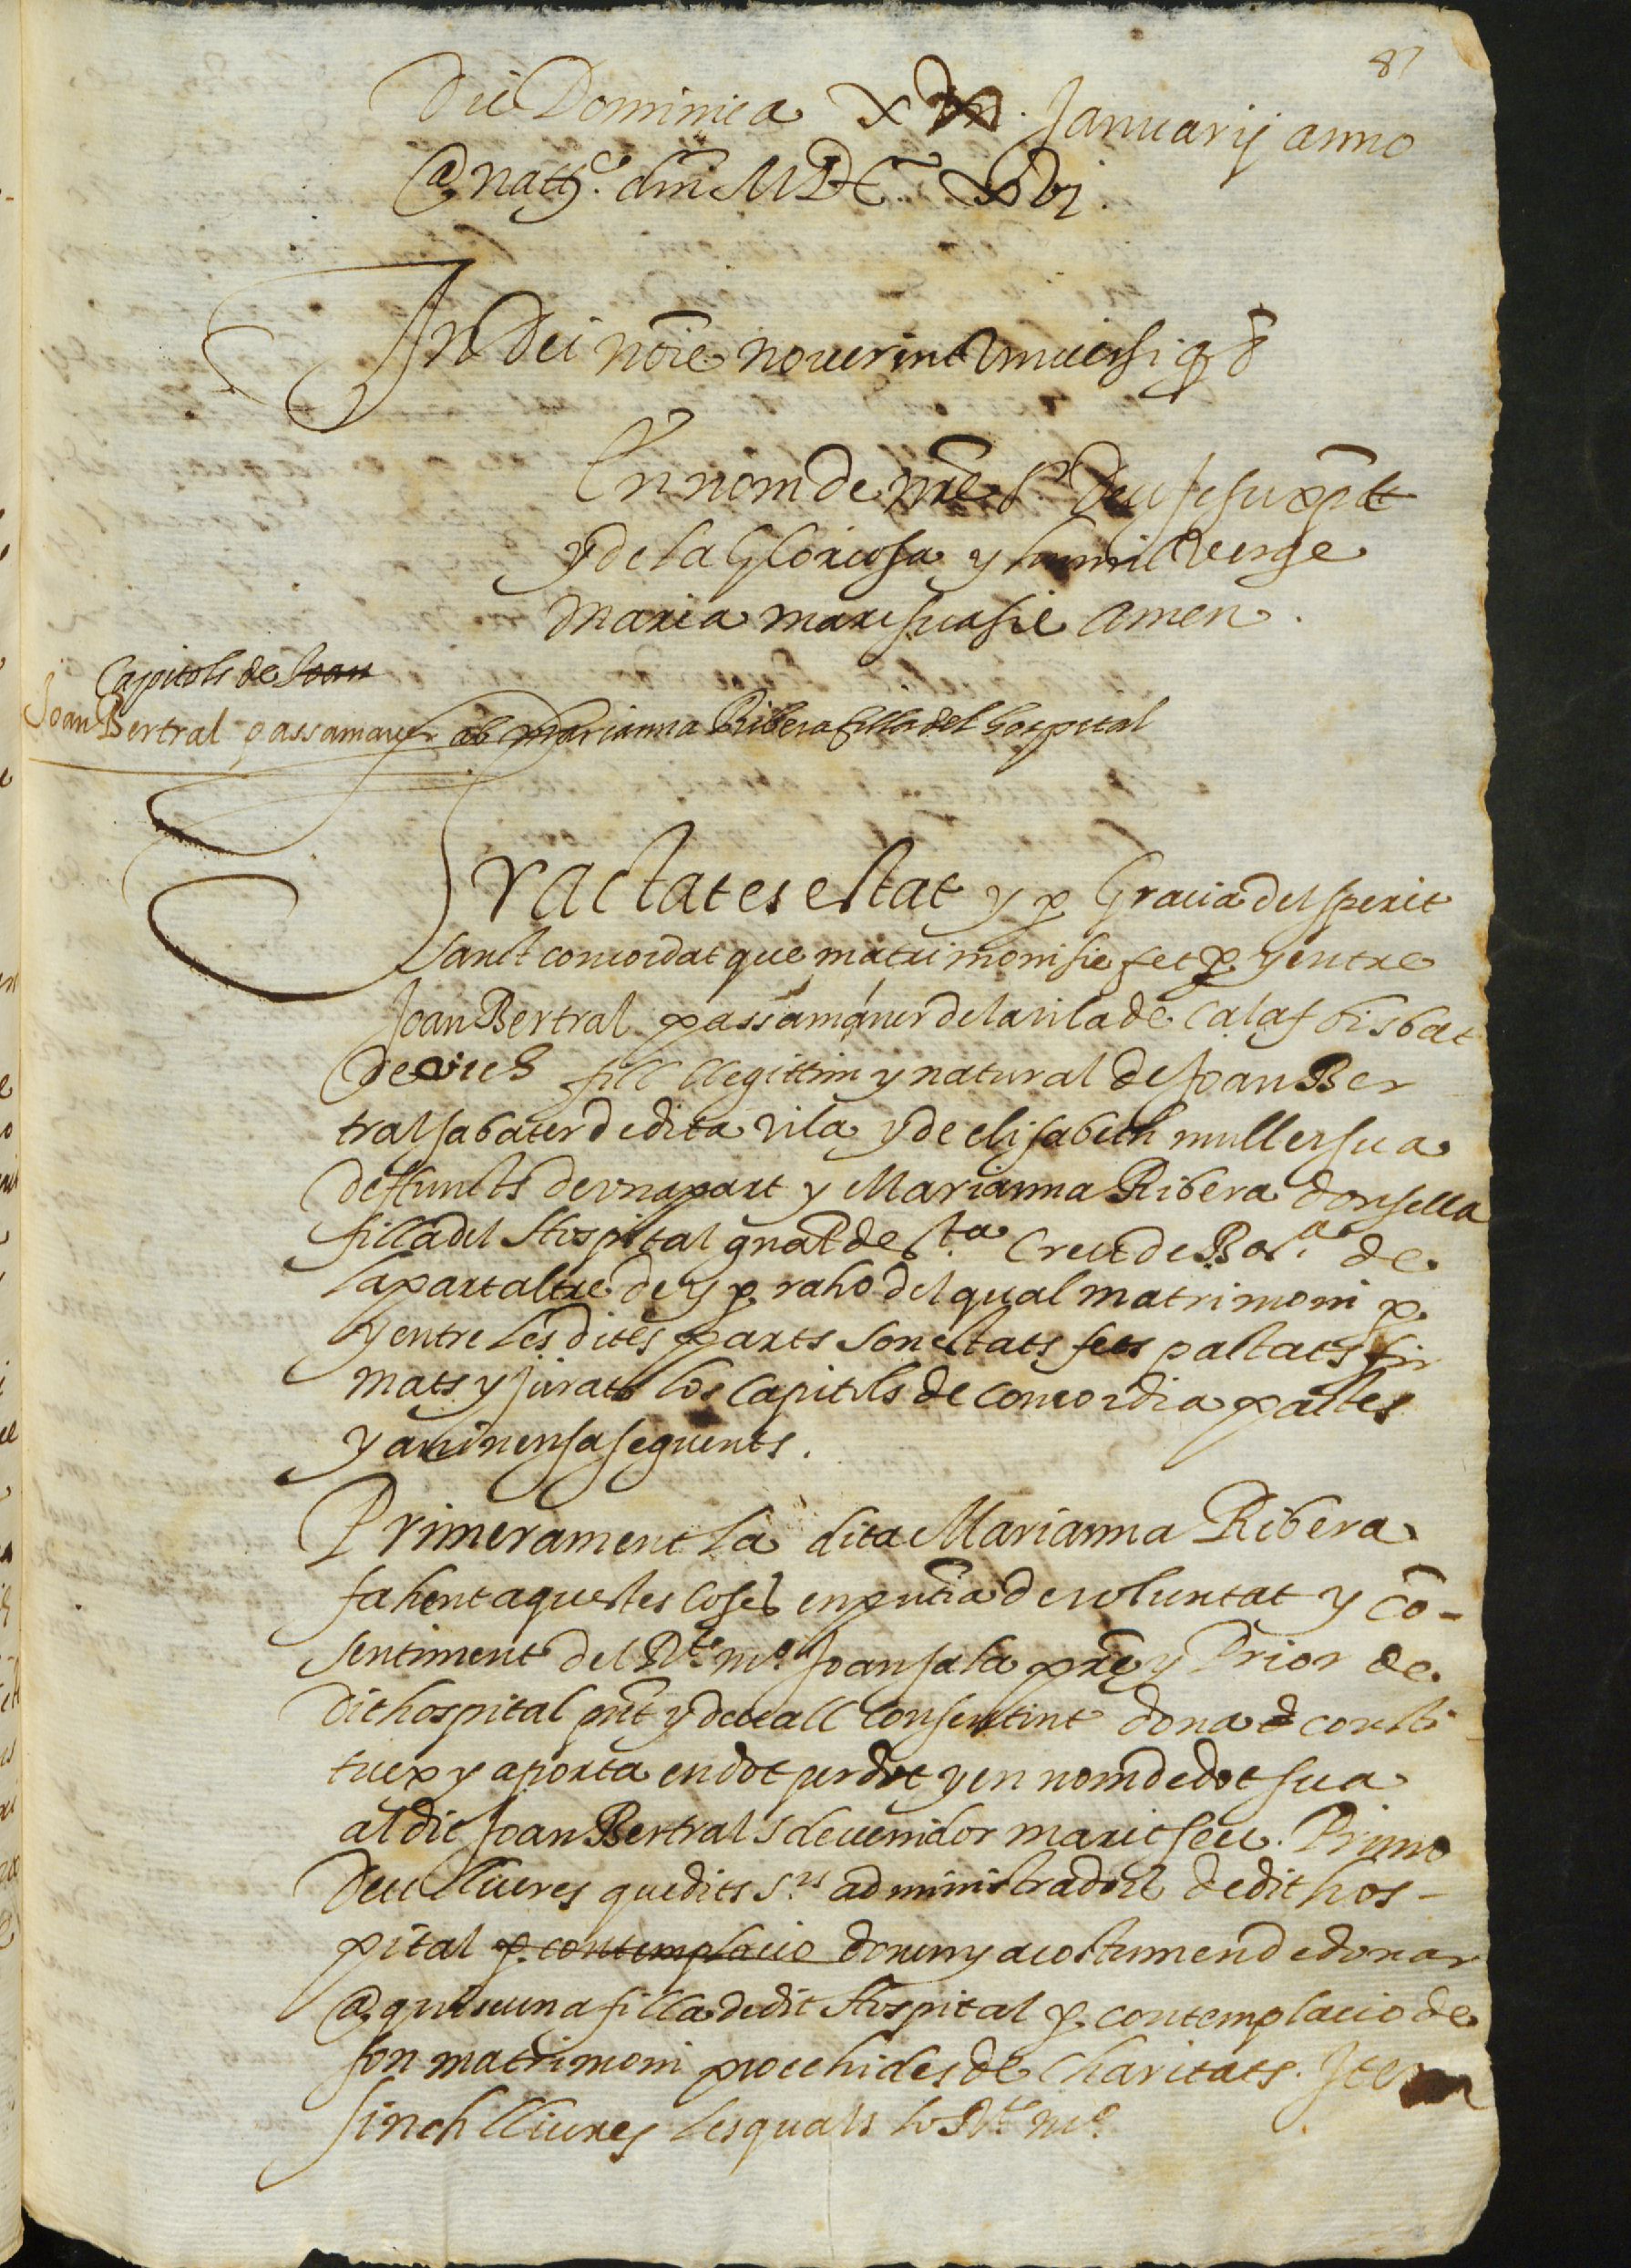 87
Die Dominica X Januarij anno
@ natte dni MDC XVI
In Dei noie nouerint vniuersi qd
En nom de nre Sr Deu Jesu xpt
y de la Gloriosa y humil Verge
Maria mare sua sie Amen.
Capitols de Joan
Joan Bertral passamaner ab Marianna Ribera filla del hospital
Tractat es estat y p Gracia del sperit
Sanct concordat que matrimoni sie fet p y entre
Joan Bertral passamaner de la vila de Calaf bisbat
de vich fill llegittim y natural de Joan Ber
tral sabater de dita vila y de elisabeth muller sua
deffuncts de vna part y Marianna Ribera donsella
filla del Hospital gnal de Sta Creu de Bar.a de
la part altre de y p raho del qual matrimoni p
y entre les dites parts son estats fets pactats fir
mats y jurats los capitols de concordia pactes
y auinensa seguents.
Primerament la dita Marianna Ribera
fahent aquestes coses en pntia de voluntat y co-
sentiment del Rt mo Joan sala pre y Prior de
dit hospital pnt y deuall consentint dona e consti
tuex y aporta en dot per dot y en nom de dot sua
al dit Joan Bertral sdeuenidor marit seu. Primo
Deu lliures que dits Srs administradors de dit hos-
pital p. contemplacio donen y acostumen de donar
@ quiscuna filla de dit Hospital p. contemplacio de
son matrimoni procehides de Charitats. Item
sinch lliures les quals lo Rt mo